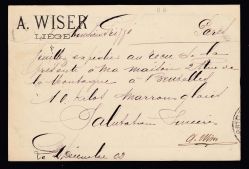 A. WISER
LIÉGE
Paris
Veuillez expédier au reçu de la
présente à ma maison 2 Rue de
la Montagne à Bruxelles
10 Kilos Marrons glacés
Salutations Sincères
A. Wiser
Décembre 02